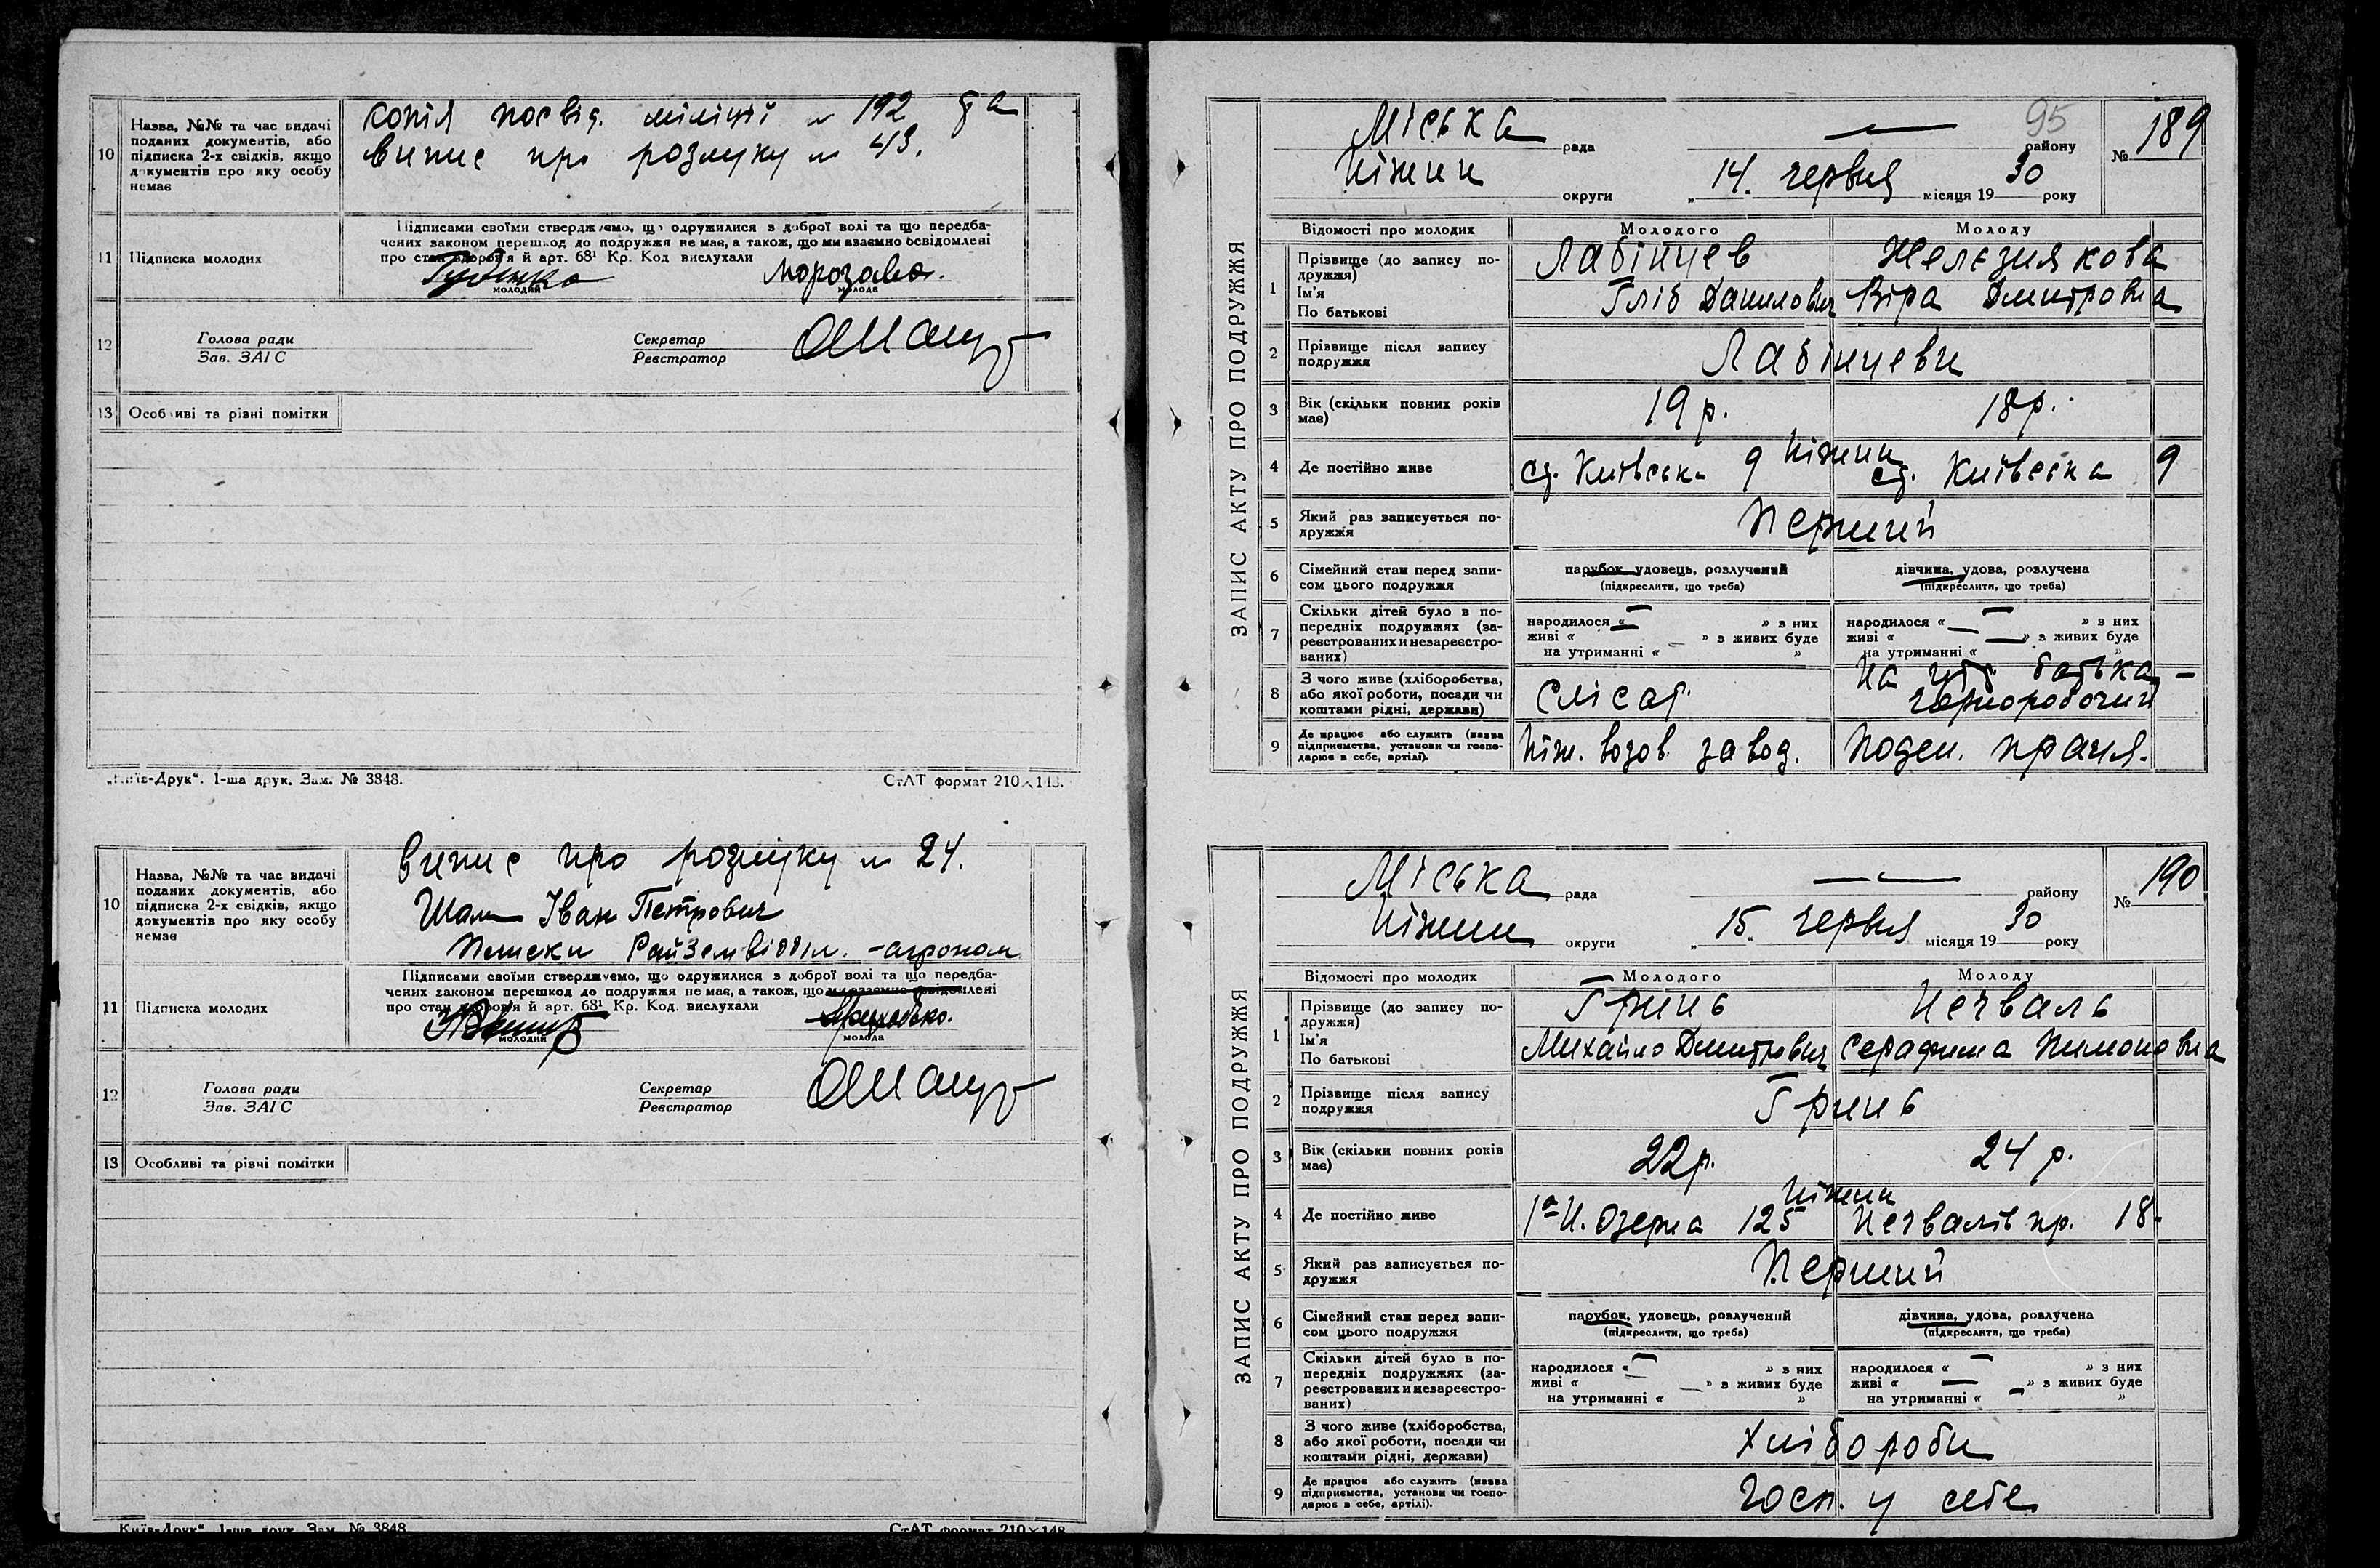 10
Назва, №№ та час видачі
поданих документів, або
підписка 2-х свідків, якщо
документів про яку особу
немає
копія посвід. міліції № 192 да
випис про розлуку № 43.
11
Підписка молодих
Підписами своїми стверджуємо, що одружилися з доброї волі та що передба-
чених законом перешкод до подружжя не має, а також, що ми взаємно освідомлені
про стан здоров'я й арт. 68¹ Кр. Код вислухали
молодий
Морозова.
молода
12
Голова ради
Зав. ЗАГС
Секретар
Реєстратор
13
Особливі та різні помітки
„Київ-Друк“. 1-ша друк. Зам. № 3848.
СтАТ формат 210×148.
10
Назва, №№ та час видачі
поданих документів, або
підписка 2-х свідків, якщо
документів про яку особу
немає
випис про розлуку № 24.
Іван Петрович
Райземвідділ. - агроном
11
Підписка молодих
Підписами своїми стверджуємо, що одружилися з доброї волі та що передба-
чених законом перешкод до подружжя не має, а також, що ми взаємно освідомлені
про стан здоров'я й арт. 68¹ Кр. Код. вислухали
молодий
молода
12
Голова ради
Зав. ЗАГС
Секретар
Реєстратор
13
Особливі та різні помітки
„Київ-Друк“. 1-ша друк. Зам. № 3848
СтАТ формат 210×148
ЗАПИС АКТУ ПРО ПОДРУЖЖЯ
95
Міська рада — району № 189
Ніжин округи „14. червня місяця 1930 року
Відомості про молодих
Молодого
Молоду
1
Прізвище (до запису по-
дружжя)
Ім'я
По батькові
Лабінцев
Гліб Данилович
Желєзнякова
Віра Дмитровна
2
Прізвище після запису
подружжя
Лабінцеви
3
Вік (скільки повних років
має)
19 р.
18 р.
4
Де постійно живе
Ніжин
ст. Київська 9
ст. Київська 9
5
Який раз записується по-
дружжя
Перший
6
Сімейний стан перед запи-
сом цього подружжя
парубок, удовець, розлучений
(підкреслити, що треба)
дівчина, удова, розлучена
(підкреслити, що треба)
7
Скільки дітей було в по-
передніх подружжях (за-
реєстрованих и незареєстро-
ваних)
народилося « — » з них
живі « — » з живих буде
на утриманні « »
народилося « — » з них
живі « — » з живих буде
на утриманні « »
8
З чого живе (хліборобства,
або якої роботи, посади чи
коштами рідні, держави)
Слісар.
На утр. батька —
чорноробочий
9
Де працює або служить (назва
підприємства, установи чи госпо-
дарює в себе, артілі).
Ніж. возов. завод.
Поден. праця.
ЗАПИС АКТУ ПРО ПОДРУЖЖЯ
Міська рада — району № 190
Ніжин округи „15“ червня місяця 1930 року
Відомості про молодих
Молодого
Молоду
1
Прізвище (до запису по-
дружжя)
Ім'я
По батькові
Гринь
Михайло Дмитрович
Нечваль
Серафима Пимоновна
2
Прізвище після запису
подружжя
Гринь
3
Вік (скільки повних років
має)
22 р.
24 р.
4
Де постійно живе
Ніжин
1а Н. Озерна 125
Нечвалів пр. 18.
5
Який раз записується по-
дружжя
Перший
6
Сімейний стан перед запи-
сом цього подружжя
парубок, удовець, розлучений
(підкреслити, що треба)
дівчина, удова, розлучена
(підкреслити, що треба)
7
Скільки дітей було в по-
передніх подружжях (за-
реєстрованих и незареєстро-
ваних)
народилося « — » з них
живі « — » з живих буде
на утриманні « »
народилося « — » з них
живі « — » з живих буде
на утриманні « »
8
З чого живе (хліборобства,
або якої роботи, посади чи
коштами рідні, держави)
Хлібороби
9
Де працює або служить (назва
підприємства, установи чи госпо-
дарює в себе, артілі).
Госп. у себе